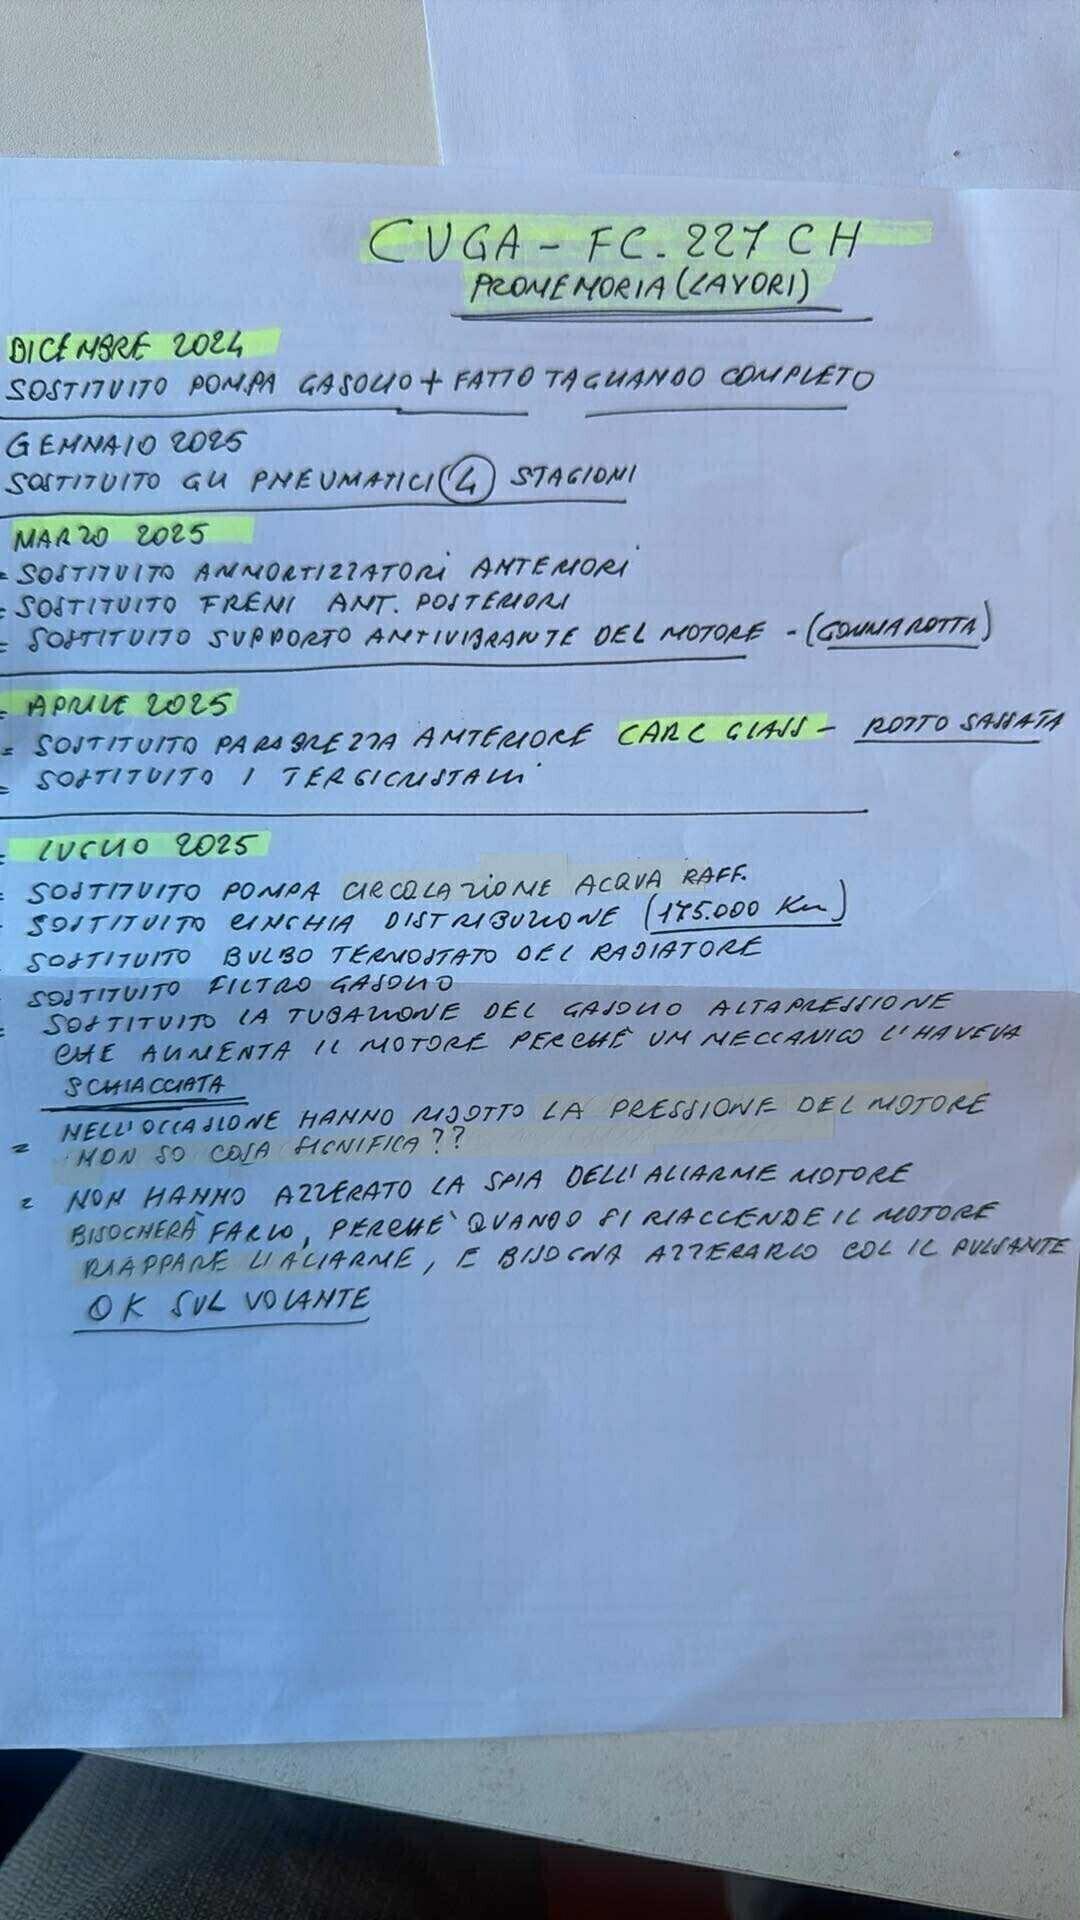 CUGA - FC. 227 CH
PROMEMORIA (LAVORI)
DICEMBRE 2024
SOSTITUITO POMPA GASOLIO + FATTO TAGLIANDO COMPLETO
GENNAIO 2025
SOSTITUITO GLI PNEUMATICI (4) STAGIONI
MARZO 2025
= SOSTITUITO AMMORTIZZATORI ANTERIORI
= SOSTITUITO FRENI ANT. POSTERIORI
= SOSTITUITO SUPPORTO ANTIVIBRANTE DEL MOTORE - (GOMMA ROTTA)
= APRILE 2025
= SOSTITUITO PARABREZZA ANTERIORE CARC GLASS - ROTTO SASSATA
= SOSTITUITO I TERGICRISTALLI
= LUGLIO 2025
= SOSTITUITO POMPA CIRCOLAZIONE ACQUA RAFF.
- SOSTITUITO CINGHIA DISTRIBUZIONE (175.000 Km)
- SOSTITUITO BULBO TERMOSTATO DEL RADIATORE
- SOSTITUITO FILTRO GASOLIO
= SOSTITUITO LA TUBAZIONE DEL GASOLIO ALTAPRESSIONE
CHE AUMENTA IL MOTORE PERCHÈ UN MECCANICO L'HAVEVA
SCHIACCIATA
= NELL'OCCASIONE HANNO RIDOTTO LA PRESSIONE DEL MOTORE
NON SO COSA SIGNIFICA??
= NON HANNO AZZERATO LA SPIA DELL'ALLARME MOTORE
BISOGNERÀ FARLO, PERCHE' QUANDO SI RIACCENDE IL MOTORE
RIAPPARE L'ALLARME, E BISOGNA AZZERARLO COL IL PULSANTE
OK SUL VOLANTE